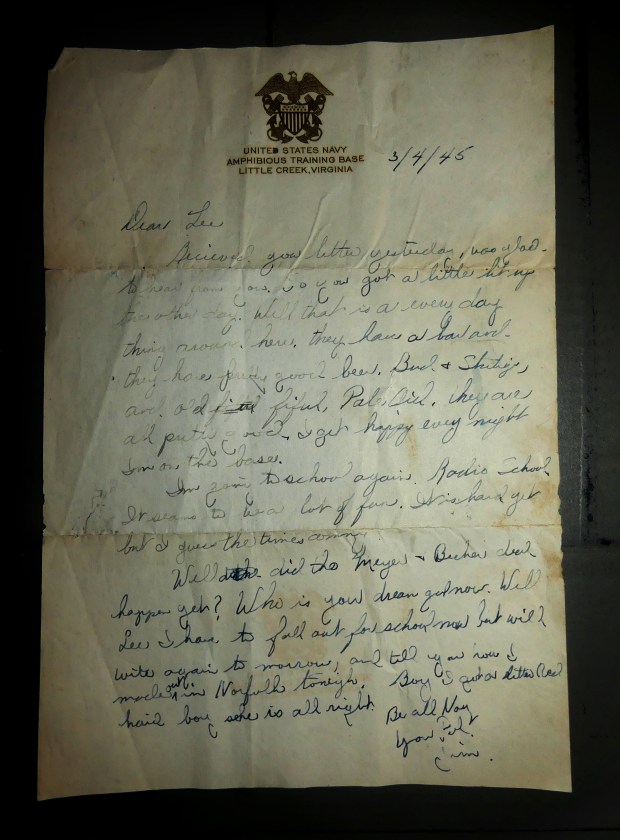 UNITED STATES NAVY
AMPHIBIOUS TRAINING BASE
LITTLE CREEK, VIRGINIA
3/4/45
Dear Lee
Recieved your letter yesterday, was glad
to hear from you. So you got a little
the other day. Well that is a every day
thing around here. they have a bar and
they have good beer. Bud. &
old Pabst they are
all good. I get happy every night
Im on the base.
Im going to school again. Radio School
It seams to be a lot of fun. It is hard yet
but I guess the times
Well did the Meyer + Becker deal
happen yet? Who is your dream girl now. Well
Lee I have to fall out for school now but will
write again to morrow, and tell you how I
made out in Norfolk Boy I got a little Red
haid boy she is all right.
Be all
Your Pal.
Jim.